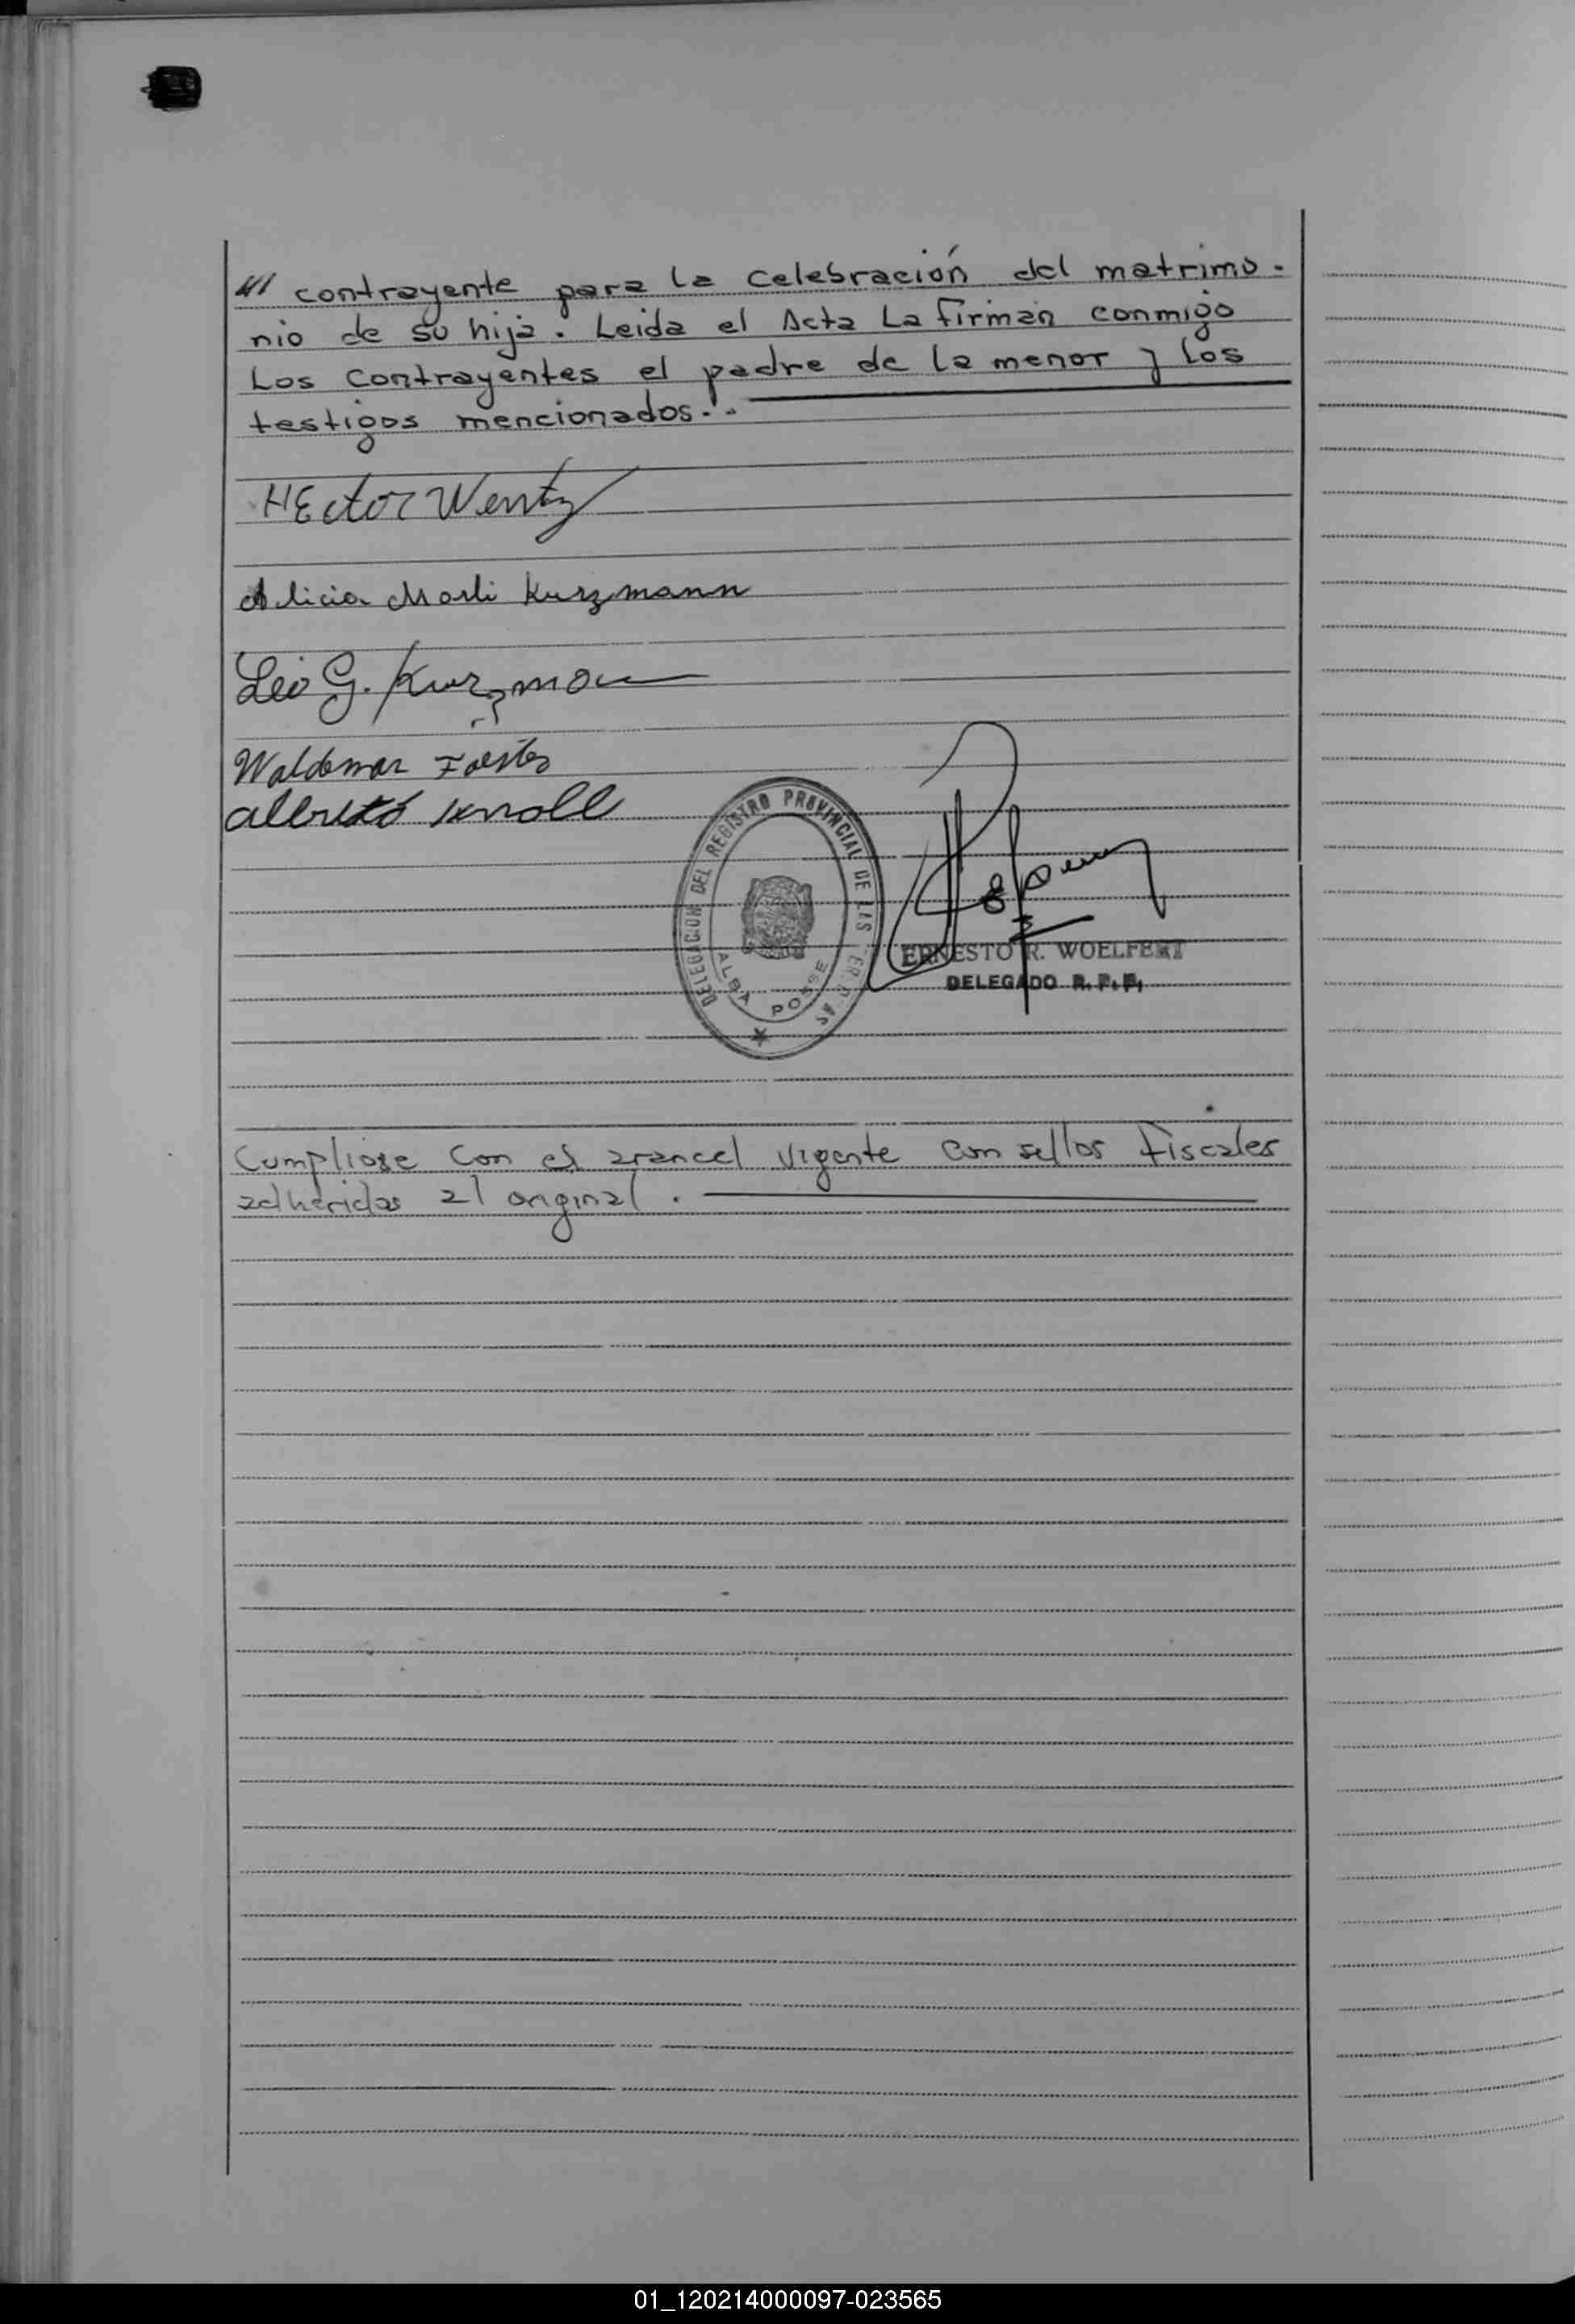 /// contrayente para la celebración del matrimo-
nio de su hija. Leida el Acta La firman conmigo
Los Contrayentes el padre de la menor y los
testigos mencionados.-
HEctor Wentz
Alicia Marli Kurzmann
Leo G. Kurzmann
Waldemar
Alberto Knoll
DELEGACION DEL REGISTRO PROVINCIAL DE LAS PERSONAS
ALBA POSSE
ERNESTO R. WOELFERT
DELEGADO R. P. P.
Cumpliose con el arancel vigente con sellos fiscales
adheridos al original.
01_120214000097-023565